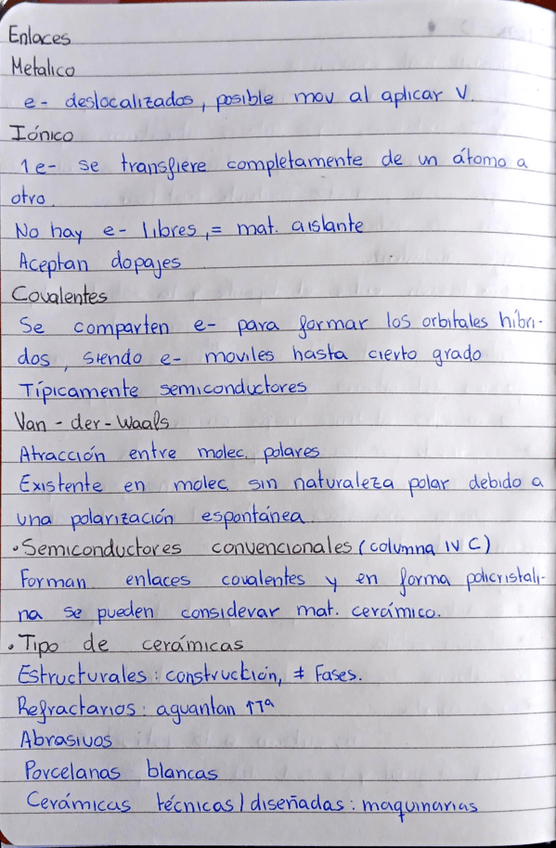 Enlaces
Metalico
e- deslocalizados, posible mov al aplicar V.
Iónico
1e- se transfiere completamente de un átomo a
otro.
No hay e- libres, = mat. aislante
Aceptan dopajes
Covalentes
Se comparten e- para formar los orbitales híbri-
dos, siendo e- moviles hasta cierto grado
Típicamente semiconductores
Van-der-Waals
Atracción entre molec. polares
Existente en molec sin naturaleza polar debido a
una polarización espontánea
• Semiconductores convencionales (columna IV C)
Forman enlaces covalentes y en forma policristali-
na se pueden considerar mat. cerámico.
• Tipo de cerámicas
Estructurales: construcción, ≠ Fases.
Refractarios: aguantan ↑Tª
Abrasivos
Porcelanas blancas
Cerámicas técnicas/diseñadas: maquinarias